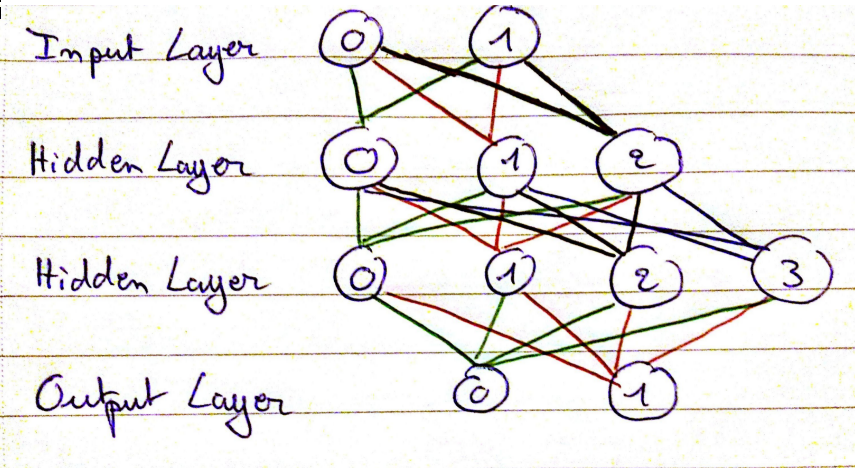 Input Layer 0 1
Hidden Layer 0 1 2
Hidden Layer 0 1 2 3
Output Layer 0 1